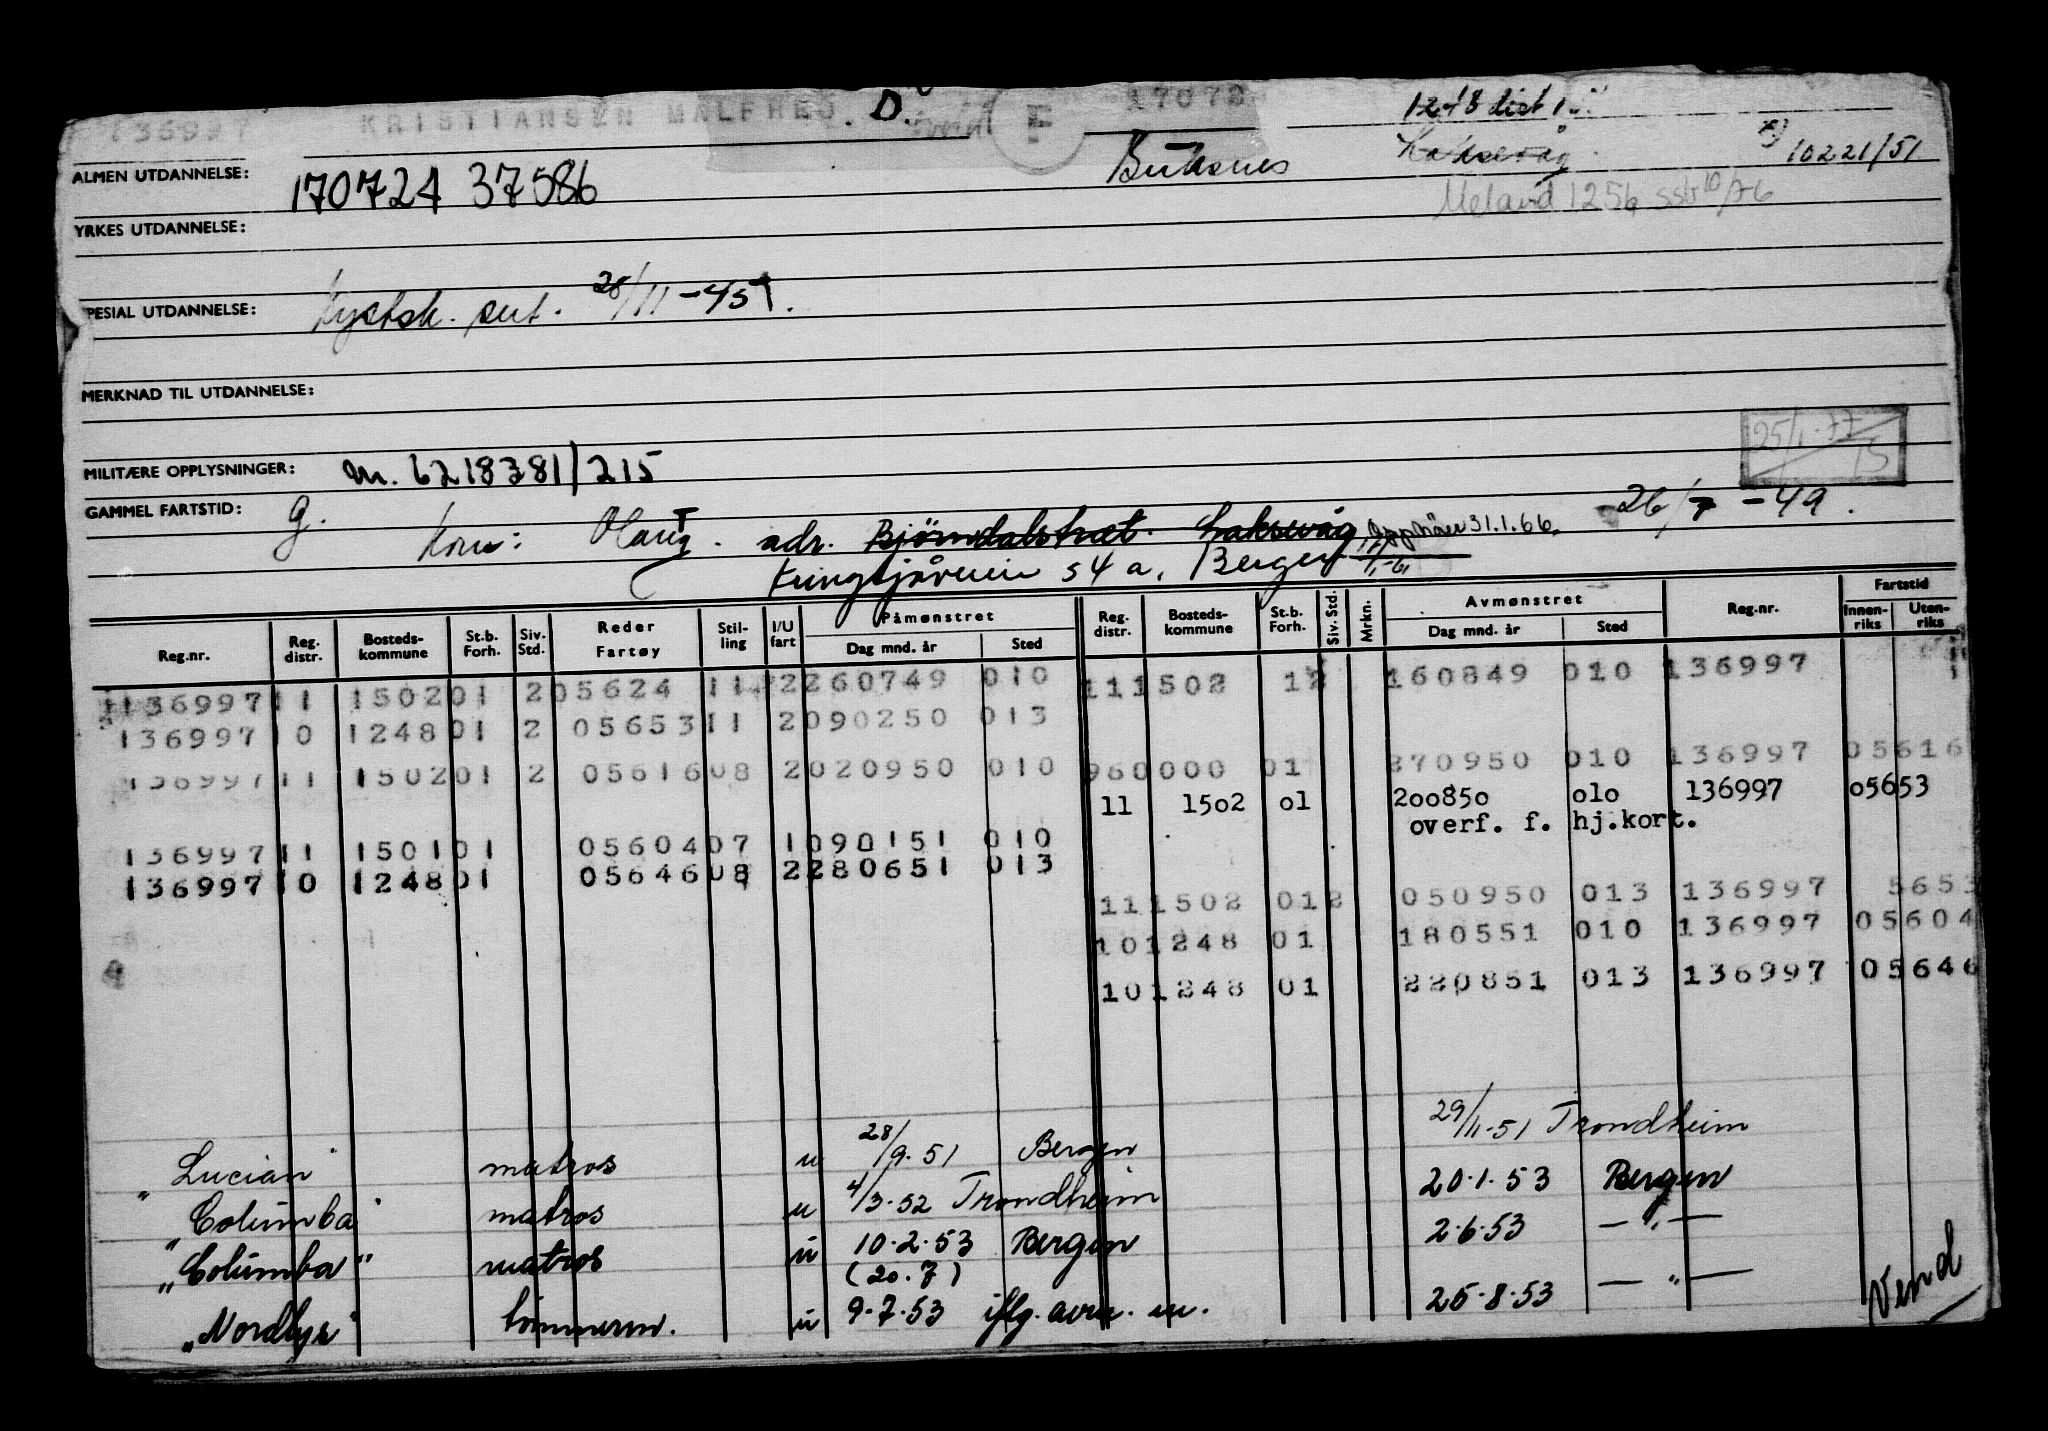 136997 KRISTIANSEN MALFRED D. F 17072 1248 dist 1
Buksnes Laksevåg 10221/51
ALMEN UTDANNELSE: 170724 37586
Meland 1256 sstr 10/76
YRKES UTDANNELSE:
SPESIAL UTDANNELSE: Kystsk. sert. 28/11-45.
MERKNAD TIL UTDANNELSE:
25/1-77 /15
MILITÆRE OPPLYSNINGER: M. 6218381/215
GAMMEL FARTSTID: g. 26/7-49.
Kone: Olaug adr. Bjørndalstræt. Laksevåg. Opphäv 31.1.66.
Kringsjåveien 54 a, Bergen
Reg.nr. Reg. distr. Bosteds- kommune St.b. Forh. Siv. Std. Reder Fartøy Stil- ling I/U fart Påmønstret Dag mnd. år Sted Reg. distr. Bosteds- kommune St.b. Forh. Siv. Std. Mrkn. Avmønstret Dag mnd. år Sted Reg.nr. Fartstid Innen- riks Uten- riks
136997 11 1502 01 2 05624 11 2 260749 010 11 1502 12 160849 010 136997
136997 10 1248 01 2 05653 11 2 090250 013
136997 11 1502 01 2 05616 08 2 020950 010 960000 01 270950 010 136997 05616
11 1502 01 200850 010 136997 05653
overf. f. hj.kort.
136997 11 1501 01 05604 07 1 090151 010
136997 10 1248 01 05646 08 2 280651 013
11 1502 01 2 050950 013 136997 5653
10 1248 01 180551 010 136997 05604
10 1248 01 220851 013 136997 05646
"Lucian" matros u 28/9.51 Bergen 29/11.51 Trondheim
"Columba" matros u 4/3.52 Trondheim 20.1.53 Bergen
"Columba" matros u 10.2.53 Bergen 2.6.53 — " —
(20.7)
"Nordlys" tømmerm. u 9.7.53 iflg. avm. m. 25.8.53 — " —
Vend